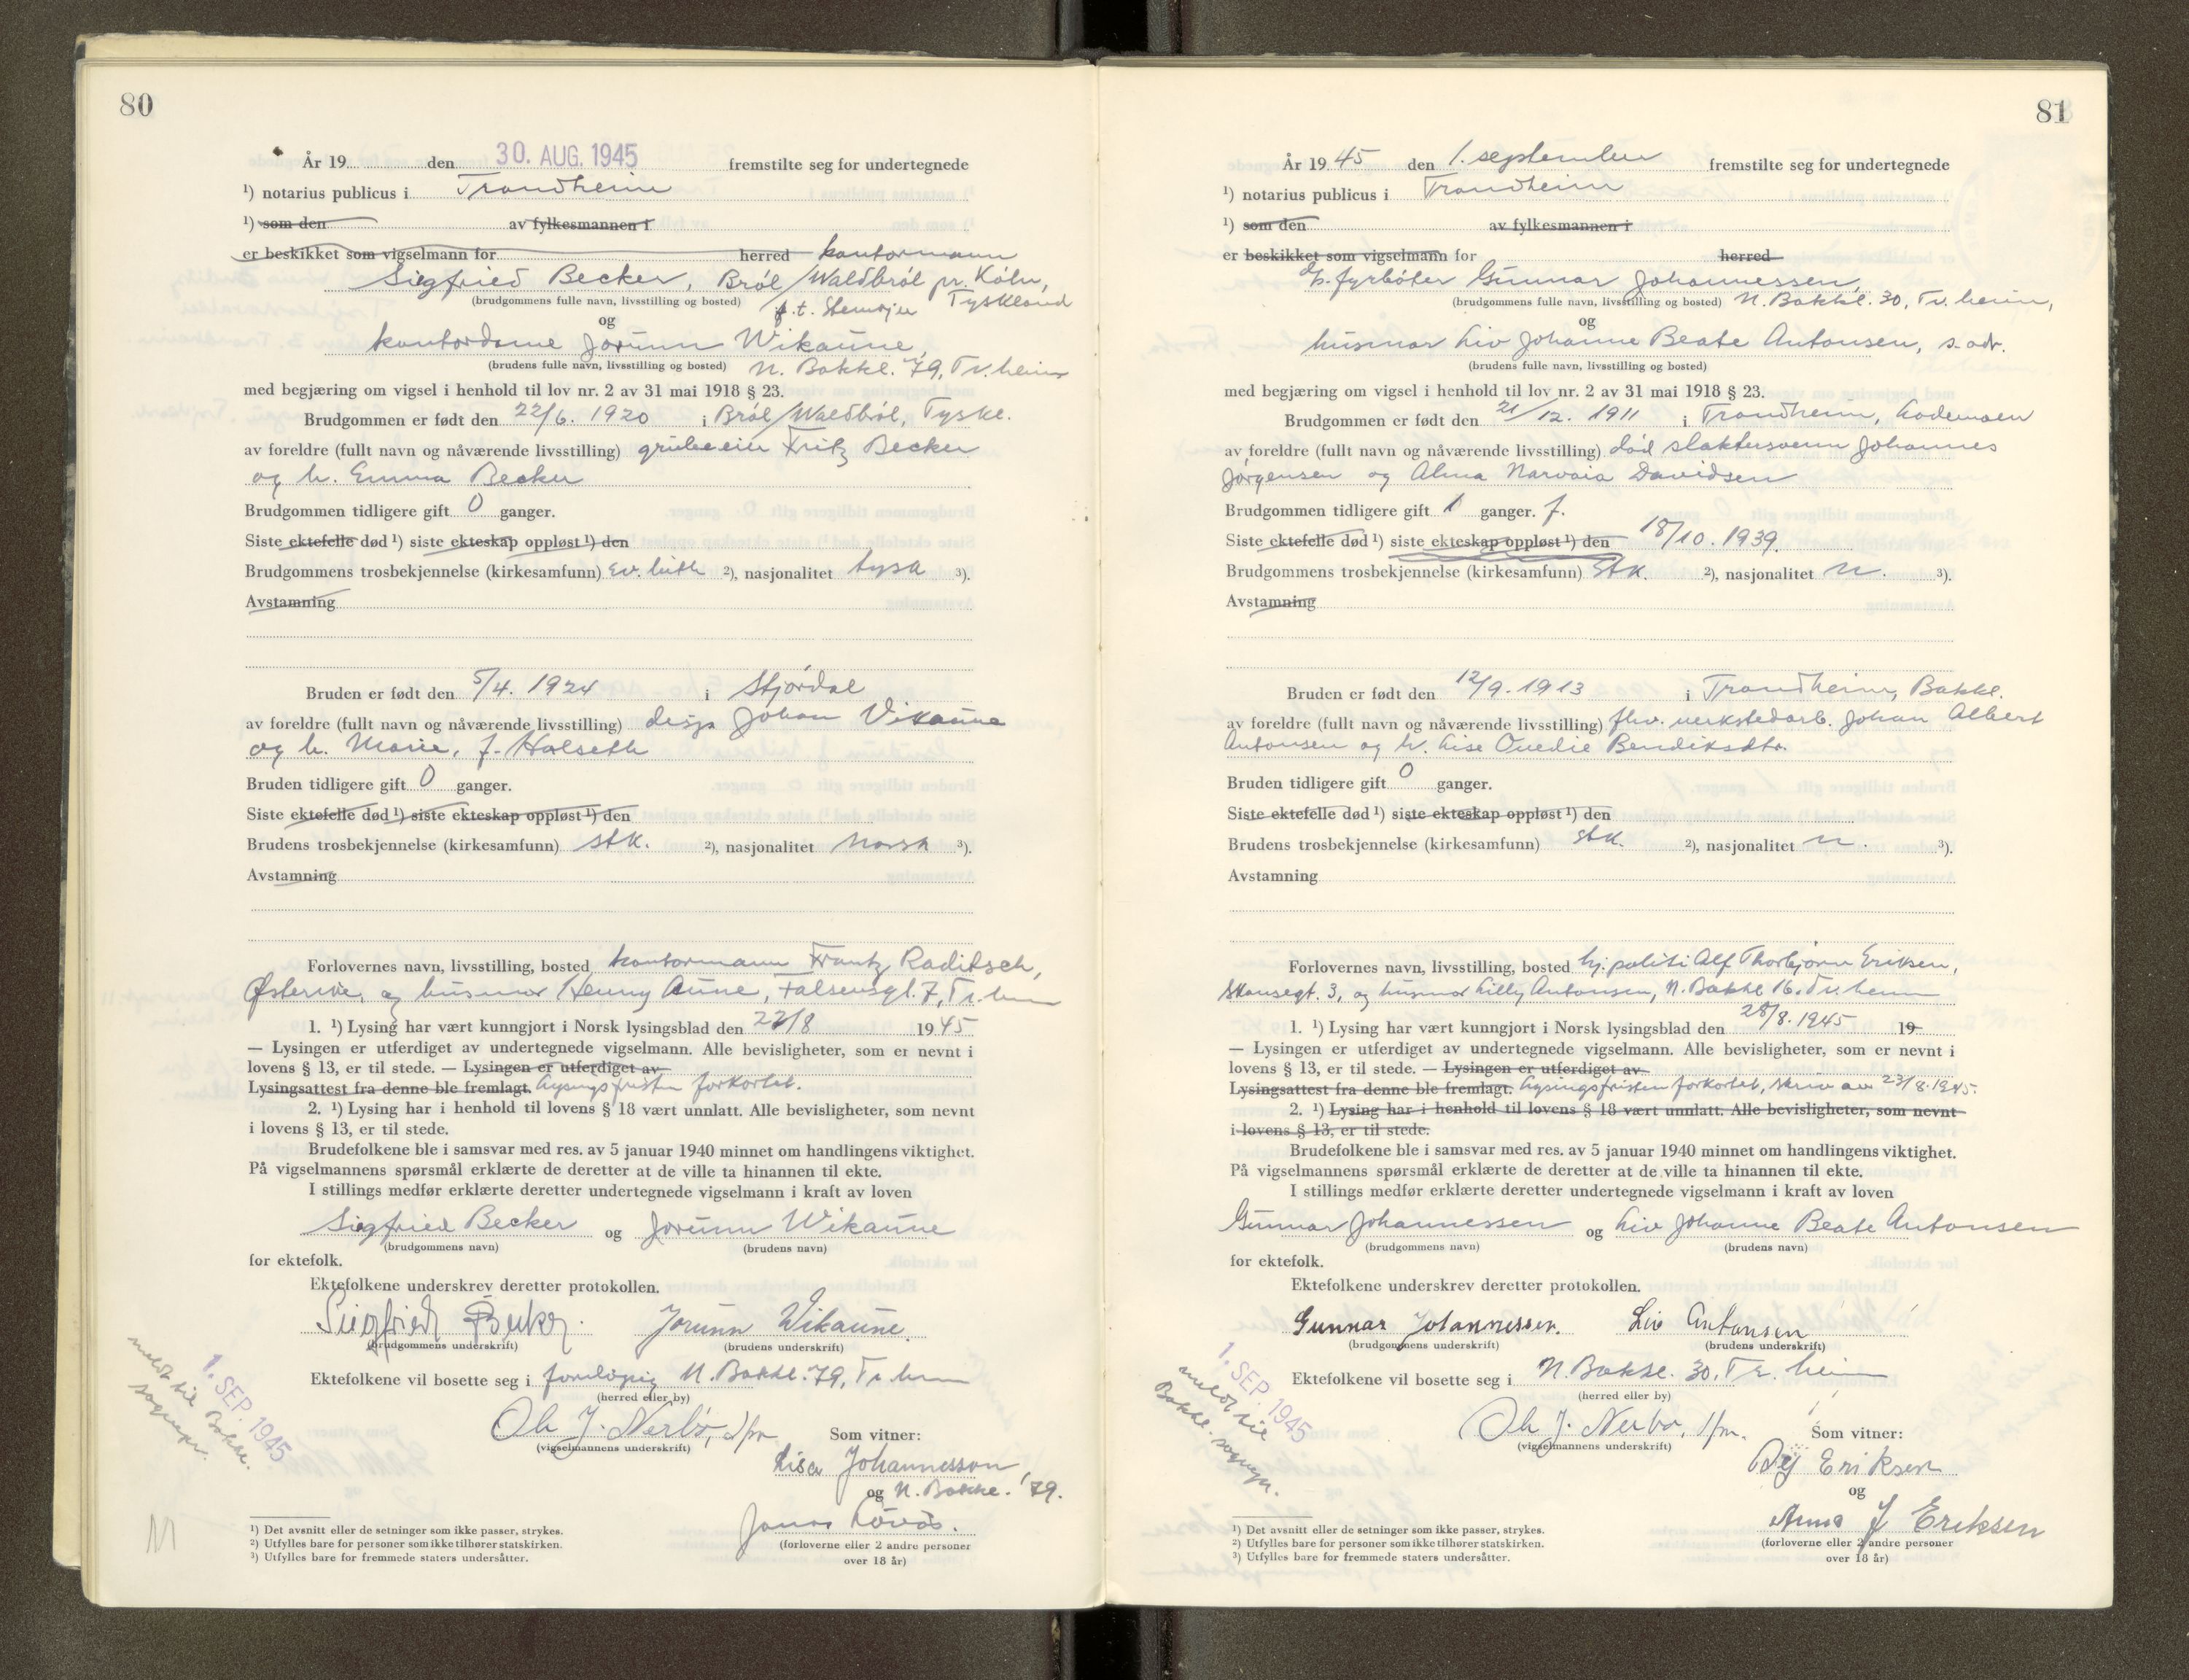 80
År 19 den 30. AUG. 1945 fremstilte seg for undertegnede
¹) notarius publicus i Trondheim
¹) som den av fylkesmannen i
er beskikket som vigselmann for herred kontormann
Siegfried Becker, Bröl/Waldbröl pr. Köln,
(brudgommens fulle navn, livsstilling og bosted) p.t. Tyskland
og
kontordame Jorunn Wikaune
(brudens fulle navn, livsstilling og bosted) N. Bakkl. 79, Tr.heim
med begjæring om vigsel i henhold til lov nr. 2 av 31 mai 1918 § 23.
Brudgommen er født den 22/6. 1920 i Bröl/Waldbröl, Tyskl.
av foreldre (fullt navn og nåværende livsstilling) grubeeier Fritz Becker
og h. Emma Becker
Brudgommen tidligere gift 0 ganger.
Siste ektefelle død ¹) siste ekteskap oppløst ¹) den
Brudgommens trosbekjennelse (kirkesamfunn) Ev. luth ²), nasjonalitet tysk ³).
Avstamning
Bruden er født den 5/4. 1924 i Stjördal
av foreldre (fullt navn og nåværende livsstilling) disp. Johan Vikaune
og h. Marie, f. Halseth
Bruden tidligere gift 0 ganger.
Siste ektefelle død ¹) siste ekteskap oppløst ¹) den
Brudens trosbekjennelse (kirkesamfunn) stk. ²), nasjonalitet norsk ³).
Avstamning
Forlovernes navn, livsstilling, bosted kontormann Frantz Raditsch,
Østerike, og husmor Henny Aune, Falsensgt. 7, Tr.heim
1. ¹) Lysing har vært kunngjort i Norsk lysingsblad den 22/8 1945
— Lysingen er utferdiget av undertegnede vigselmann. Alle bevisligheter, som er nevnt i
lovens § 13, er til stede. — Lysingen er utferdiget av
Lysingsattest fra denne ble fremlagt. Lysingsfristen forkortet.
2. ¹) Lysing har i henhold til lovens § 18 vært unnlatt. Alle bevisligheter, som nevnt
i lovens § 13, er til stede.
Brudefolkene ble i samsvar med res. av 5 januar 1940 minnet om handlingens viktighet.
På vigselmannens spørsmål erklærte de deretter at de ville ta hinannen til ekte.
I stillings medfør erklærte deretter undertegnede vigselmann i kraft av loven
Siegfried Becker og Jorunn Wikaune
(brudgommens navn) (brudens navn)
for ektefolk.
Ektefolkene underskrev deretter protokollen.
Siegfried Becker. Jorunn Wikaune.
(brudgommens underskrift) (brudens underskrift)
Ektefolkene vil bosette seg i foreløpig N. Bakkl. 79, Tr.heim
(herred eller by)
Ole J. Nerbö, d/fm
(vigselmannens underskrift) Som vitner:
Lisa Johannesson
og N. Bakke. 79.
Jonas Lövås.
(forloverne eller 2 andre personer
over 18 år)
1. SEP. 1945
meldt til Bakkl.
sognepr.
¹) Det avsnitt eller de setninger som ikke passer, strykes.
²) Utfylles bare for personer som ikke tilhører statskirken.
³) Utfylles bare for fremmede staters undersåtter.
81
År 1945 den 1. september fremstilte seg for undertegnede
¹) notarius publicus i Trondheim
¹) som den av fylkesmannen i
er beskikket som vigselmann for herred
fyrböter Gunnar Johannessen,
(brudgommens fulle navn, livsstilling og bosted) N. Bakkl. 30, Tr.heim,
og
husmor Liv Johanne Beate Antonsen, s. adr.
(brudens fulle navn, livsstilling og bosted)
med begjæring om vigsel i henhold til lov nr. 2 av 31 mai 1918 § 23.
Brudgommen er født den 21/12. 1911 i Trondheim, Lademoen
av foreldre (fullt navn og nåværende livsstilling) död slaktersvenn Johannes
Jörgensen og Alma Narvaia Davidsen
Brudgommen tidligere gift 1 ganger. f.
Siste ektefelle død ¹) siste ekteskap oppløst ¹) den 18/10. 1939.
Brudgommens trosbekjennelse (kirkesamfunn) Stk. ²), nasjonalitet n. ³).
Avstamning
Bruden er født den 12/9. 1913 i Trondheim, Bakkl.
av foreldre (fullt navn og nåværende livsstilling) fhv. verkstedarb. Johan Albert
Antonsen og h. Lise Ovedie Bendiksdtr.
Bruden tidligere gift 0 ganger.
Siste ektefelle død ¹) siste ekteskap oppløst ¹) den
Brudens trosbekjennelse (kirkesamfunn) Stk. ²), nasjonalitet n. ³).
Avstamning
Forlovernes navn, livsstilling, bosted hj. politi Alf Thorbjörn Eriksen,
Skansegt. 3, og husmor Lilly Antonsen, N. Bakkl 16. Tr.heim
1. ¹) Lysing har vært kunngjort i Norsk lysingsblad den 28/8. 1945 19
— Lysingen er utferdiget av undertegnede vigselmann. Alle bevisligheter, som er nevnt i
lovens § 13, er til stede. — Lysingen er utferdiget av
Lysingsattest fra denne ble fremlagt. Lysingsfristen forkortet, skriv av 23/8. 1945.
2. ¹) Lysing har i henhold til lovens § 18 vært unnlatt. Alle bevisligheter, som nevnt
i lovens § 13, er til stede.
Brudefolkene ble i samsvar med res. av 5 januar 1940 minnet om handlingens viktighet.
På vigselmannens spørsmål erklærte de deretter at de ville ta hinannen til ekte.
I stillings medfør erklærte deretter undertegnede vigselmann i kraft av loven
Gunnar Johannessen og Liv Johanne Beate Antonsen
(brudgommens navn) (brudens navn)
for ektefolk.
Ektefolkene underskrev deretter protokollen.
Gunnar Johannessen. Liv Antonsen
(brudgommens underskrift) (brudens underskrift)
Ektefolkene vil bosette seg i N. Bakkl. 30, Tr.heim
(herred eller by)
Ole J. Nerbö, d/fm.
(vigselmannens underskrift) Som vitner:
Eriksen
og
Anna J Eriksen
(forloverne eller 2 andre personer
over 18 år)
1. SEP. 1945
meldt til
Bakkl. sognepr.
¹) Det avsnitt eller de setninger som ikke passer, strykes.
²) Utfylles bare for personer som ikke tilhører statskirken.
³) Utfylles bare for fremmede staters undersåtter.